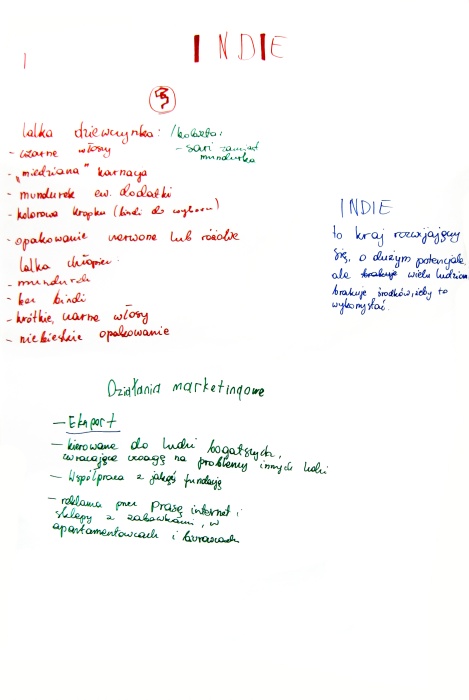 INDIE
lalka dziewczynka: /kobieta:
- czarne włosy
- sari zamiast mundurka
- „miedziana" karnacja
- mundurek ew. dodatki
- kolorowa kropka (bindi do wyboru)
- opakowanie czerwone lub różowe
lalka chłopiec
- mundurek
- bez bindi
- krótkie, czarne włosy
- niebieskie opakowanie
INDIE
to kraj rozwijający
się, o dużym potencjale,
ale brakuje wielu ludziom
brakuje środków, żeby to
wykorzystać.
Działania marketingowe
- Eksport
- kierowane do ludzi bogatszych,
zwracające uwagę na problemy innych ludzi
- Współpraca z jakąś fundacją
- reklama przez prasę internet i
sklepy z zabawkami, w
apartamentowcach i biurowcach